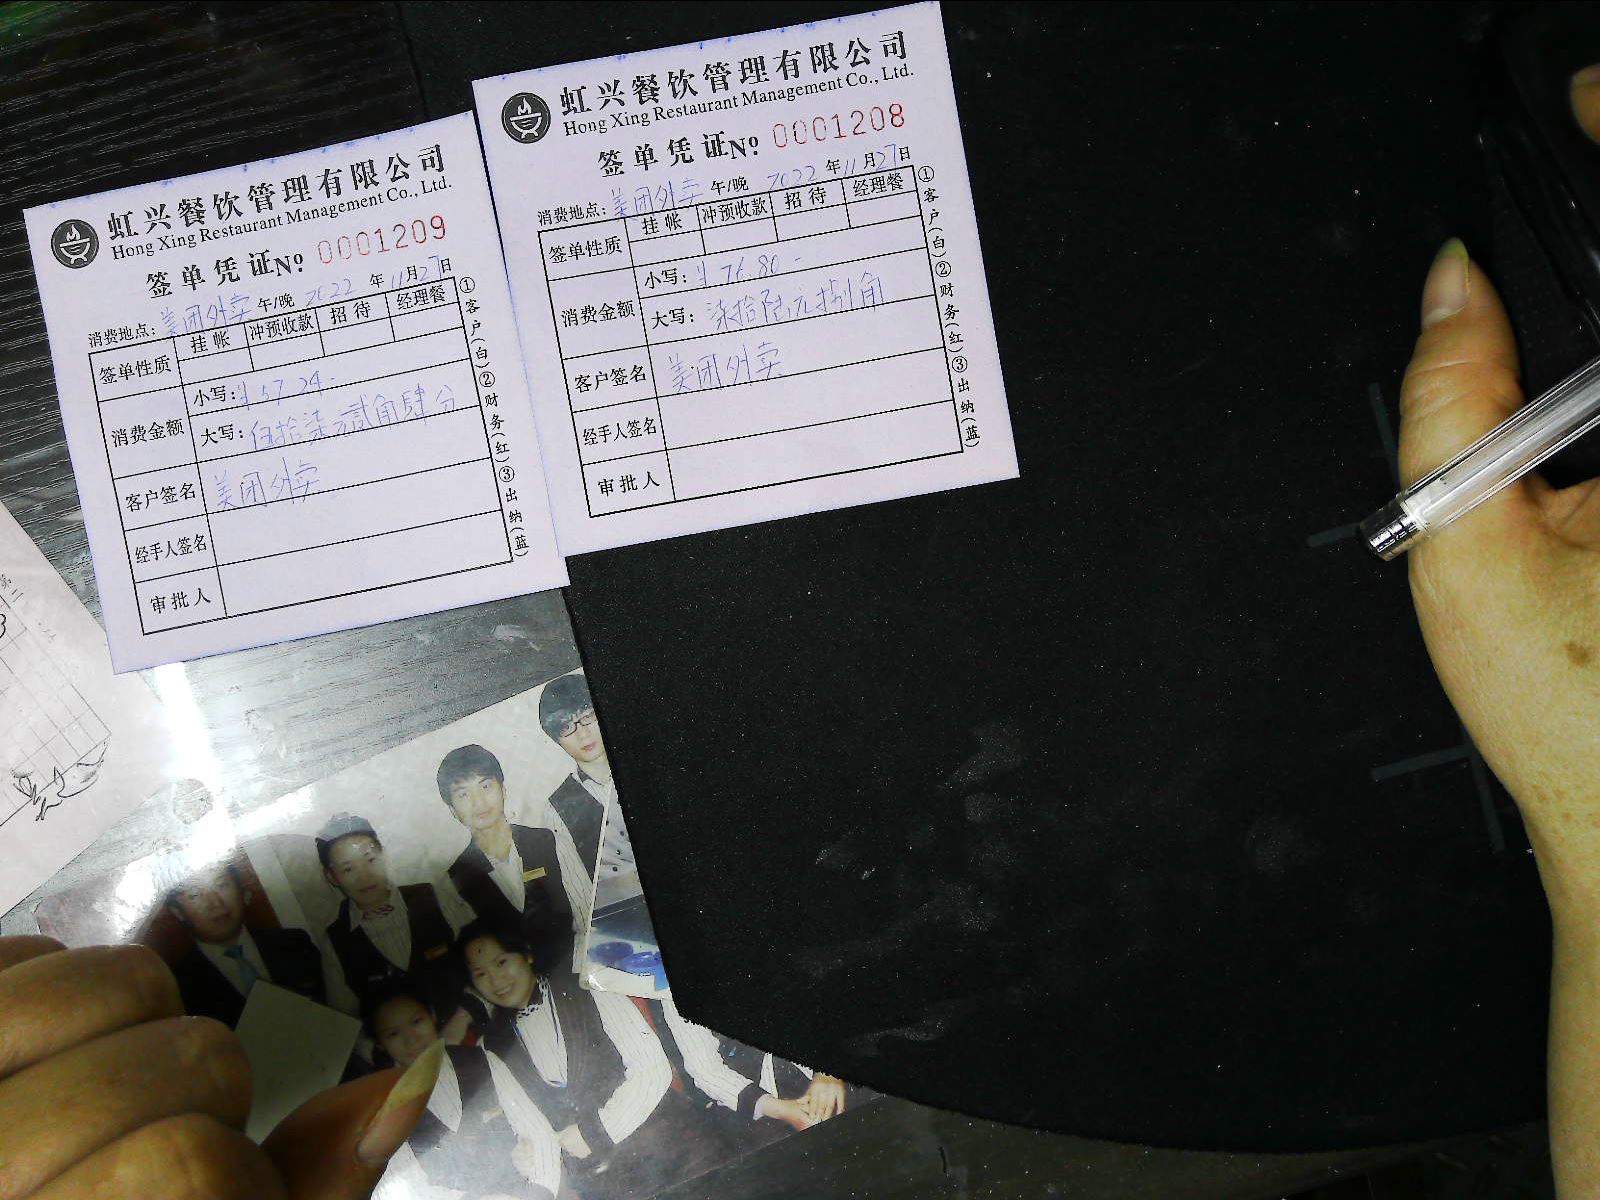 虹兴餐饮管理有限公司
Hong Xing Restaurant Management Co., Ltd.
签单凭证 Nº 0001209
消费地点：美团外卖 午/晚 2022年11月27日
签单性质 挂帐 冲预收款 招待 经理餐
消费金额 小写：¥57.24-
大写：伍拾柒元贰角肆分
客户签名 美团外卖
经手人签名
审批人
①客户(白)②财务(红)③出纳(蓝)
虹兴餐饮管理有限公司
Hong Xing Restaurant Management Co., Ltd.
签单凭证 Nº 0001208
消费地点：美团外卖 午/晚 2022年11月27日
签单性质 挂帐 冲预收款 招待 经理餐
消费金额 小写：¥76.80-
大写：柒拾陆元捌角
客户签名 美团外卖
经手人签名
审批人
①客户(白)②财务(红)③出纳(蓝)
第二